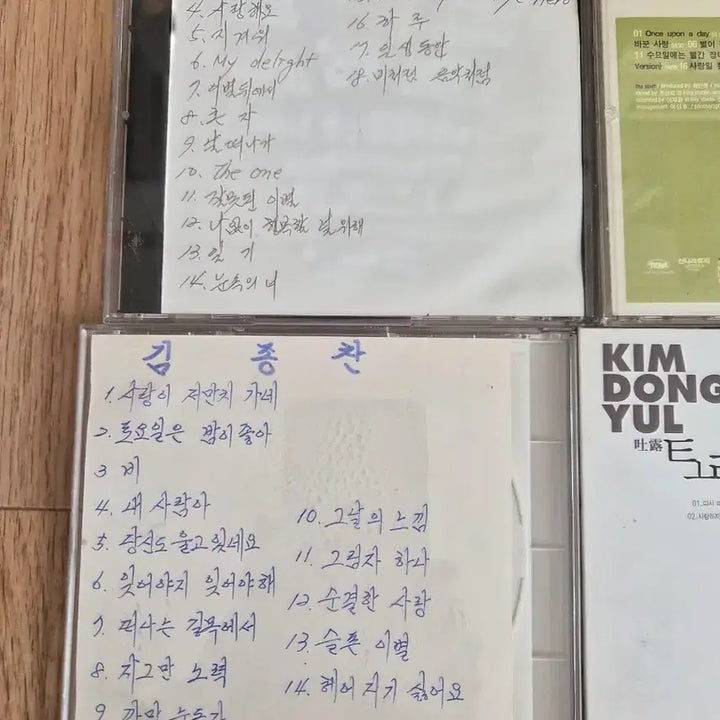 4. 사랑해요
5. 지겨워
6. My delight
7. 이별뒤에서
8. 혼자
9. 날 떠나가
10. The one
11. 잘못된 이별
12. 나없이 행복할 널 위해
13. 일기
14. 눈 속의 너
16. 하루
17. 일생동안
18.
01 Once upon a day
바꾼 사랑
06 별이
11 수요일에는 빨간 장
Version)
16 사랑일
김종찬
1. 사랑이 저만치 가네
2. 토요일은 밤이 좋아
3 비
4. 내 사랑아
5. 당신도 울고 있네요
6. 잊어야지 잊어야해
7. 떠나는 길목에서
8. 자그만 노력
9. 까만 눈동자
10. 그날의 느낌
11. 그림자 하나
12. 순결한 사랑
13. 슬픈 이별
14. 헤어지기 싫어요
KIM
DONG
YUL
吐露 토로
01. 다시
02. 사랑하지